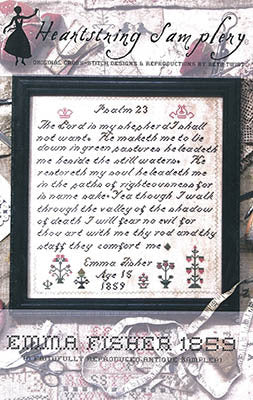 Heartstring Samplery
ORIGINAL CROSS-STITCH DESIGNS & REPRODUCTIONS BY BETH TWIST
Psalm 23
The Lord is my shepherd I shall
not want. He maketh me to lie
down in green pastures he leadeth
me beside the still waters. He
restoreth my soul he leadeth me
in the paths of righteousness for
is name sake Yea though I walk
through the valley of the shadow
of death I will fear no evil for
thou art with me thy rod and thy
staff they comfort me
Emma Fisher
Age 18
1859
EMMA FISHER 1859
(A FAITHFULLY REPRODUCED ANTIQUE SAMPLER)